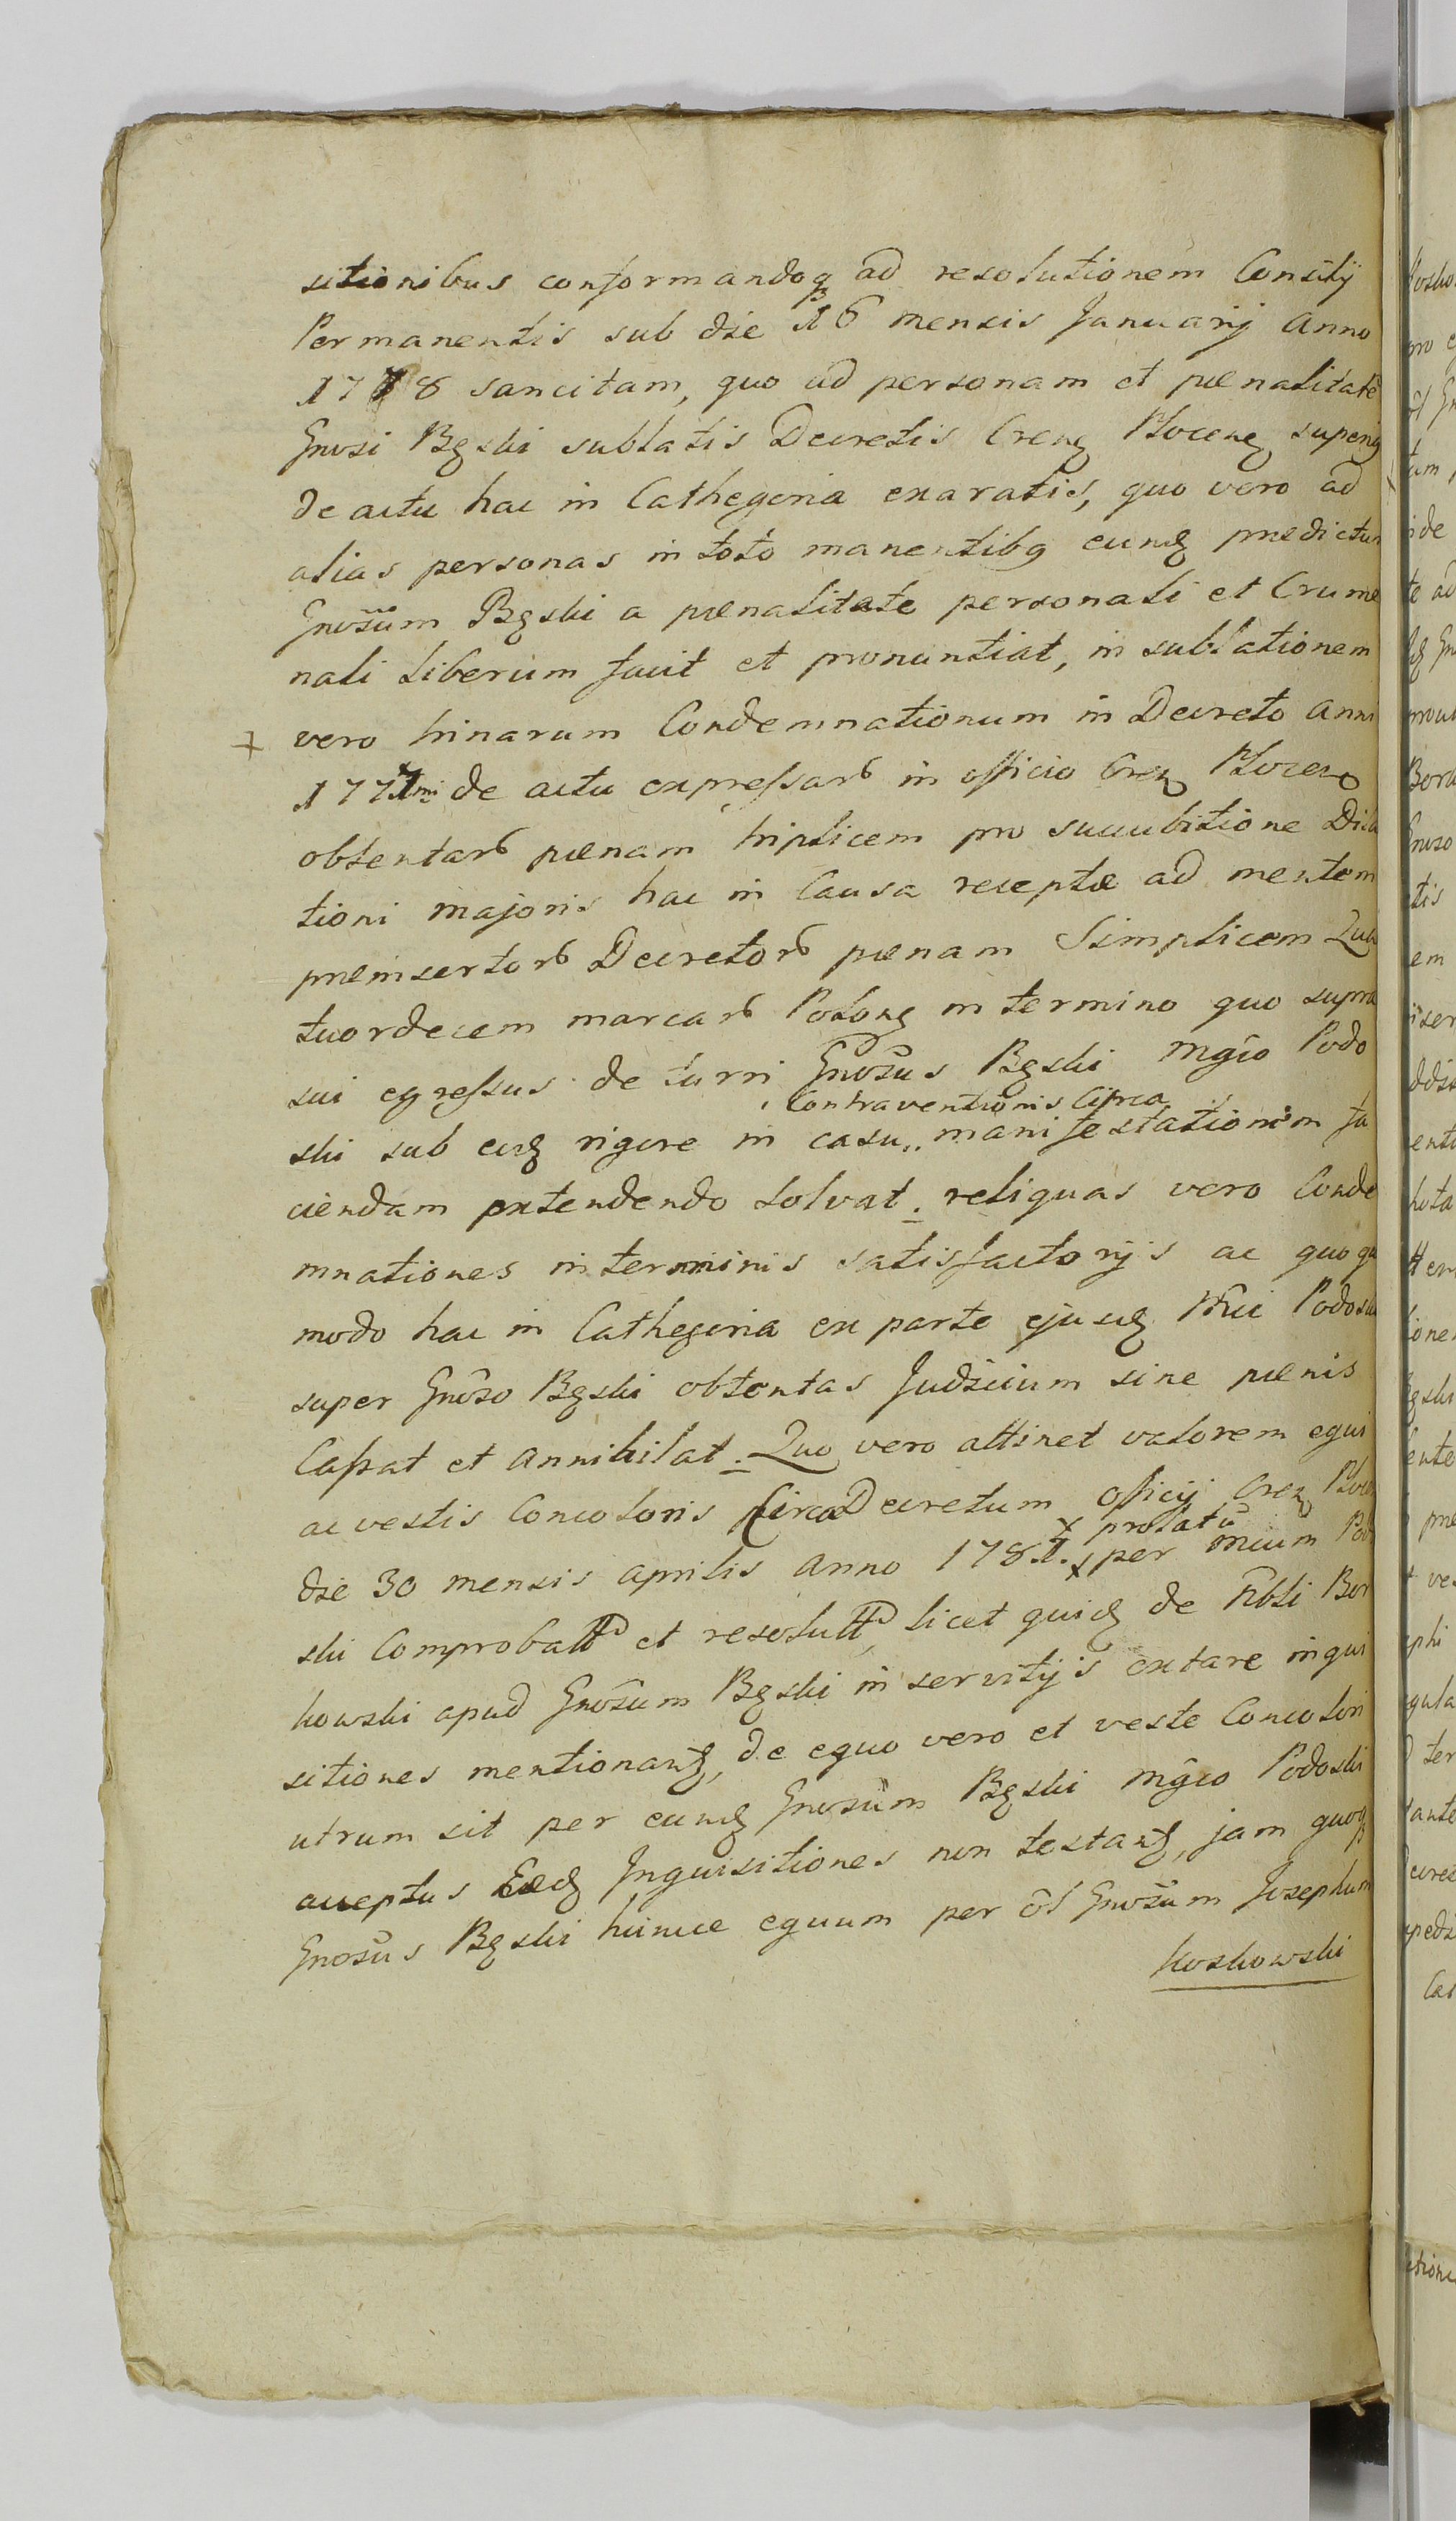 sitionibus conformandoq ad resolutionem Consilij
Permanentis sub die 16 mensis Januarij Anno
1778 sancitam, quo ad personam et pœnalitatē
Gnosi Bgski sublatis Decretis Cren Plocen superin
de actu hac in Cathegoria exaratis, quo vero ad
alias personas in toto manentibq eund prædictum
Gnosūm Bgski a pœnalitate personali et Crume
nali liberum facit et pronuntiat, in sublationem
+ vero trinarum Condemnationum in Decreto Anni
1777mi de actu expressarō in officio Cren Plocen
obtentarō pœnam triplicem pro succubitione Dila
tioni majoris hac in Causa receptæ ad mentem
præinsertorō Decretorō pœnam Simplicem Qua
tuordecem marcarō Polon in termino quo supra
sui egressus de turri Gnosūs Bgski Mgīo Podo
Contraventionis Circa
ski sub eod rigore in casu,, manifestationem fa
ciendam extendendo solvat. reliquas vero Conde
mnationes in terminis satisfactorijs ac quoqu
modo hac in Cathegoria ex parte ejusd Mci Podoski
super Gnōso Bgski obtentas Judicium sine pœnis
Cassat et Annihilat. Quo vero attinet valorem equi
ac vestis Concoloris Circa Decretum Officij Cren Plocen
x prolatū
die 30 mensis Aprilis Anno 1781. x per Mcum Podo
ski Comprobatt et resolutt, licet quid de Nbli Bor
kowski apud Gnosūm Bgski in servitijs extare inqui
sitiones mentionant, de equo vero et veste Concolori
utrum sit per eund Gnosūm Bgski Mgīco Podoski
acceptus Eæd Inquisitiones non testant, jam quoq
Gnosūs Bgski hunce equum per ōl Gnosūm Josephum
Koskowski